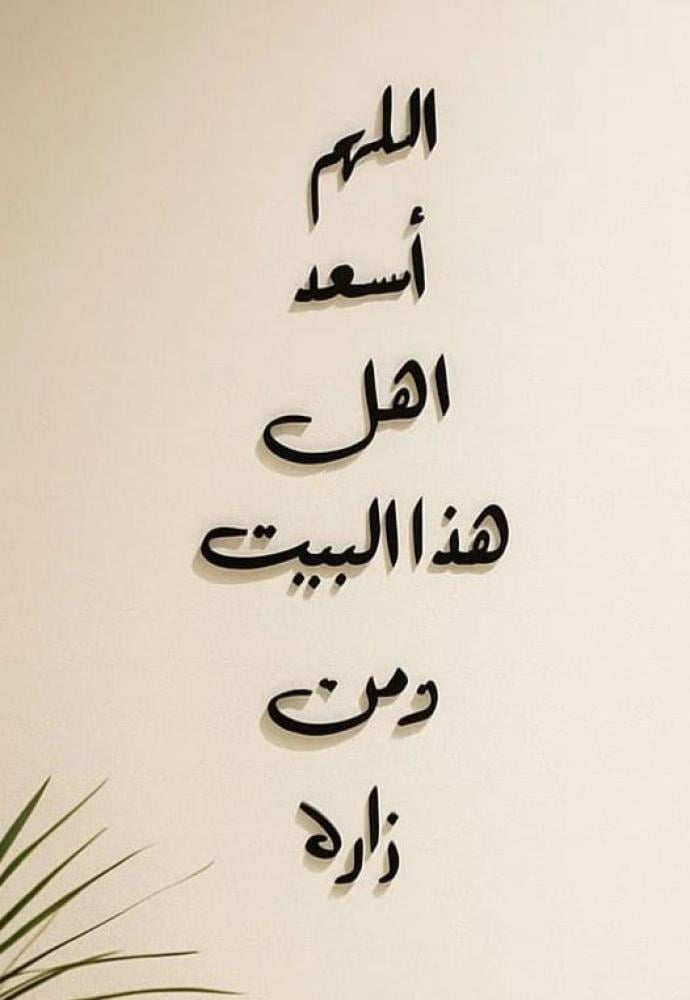 اللهم
أسعد
اهل
هذا البيت
ومن
زاره